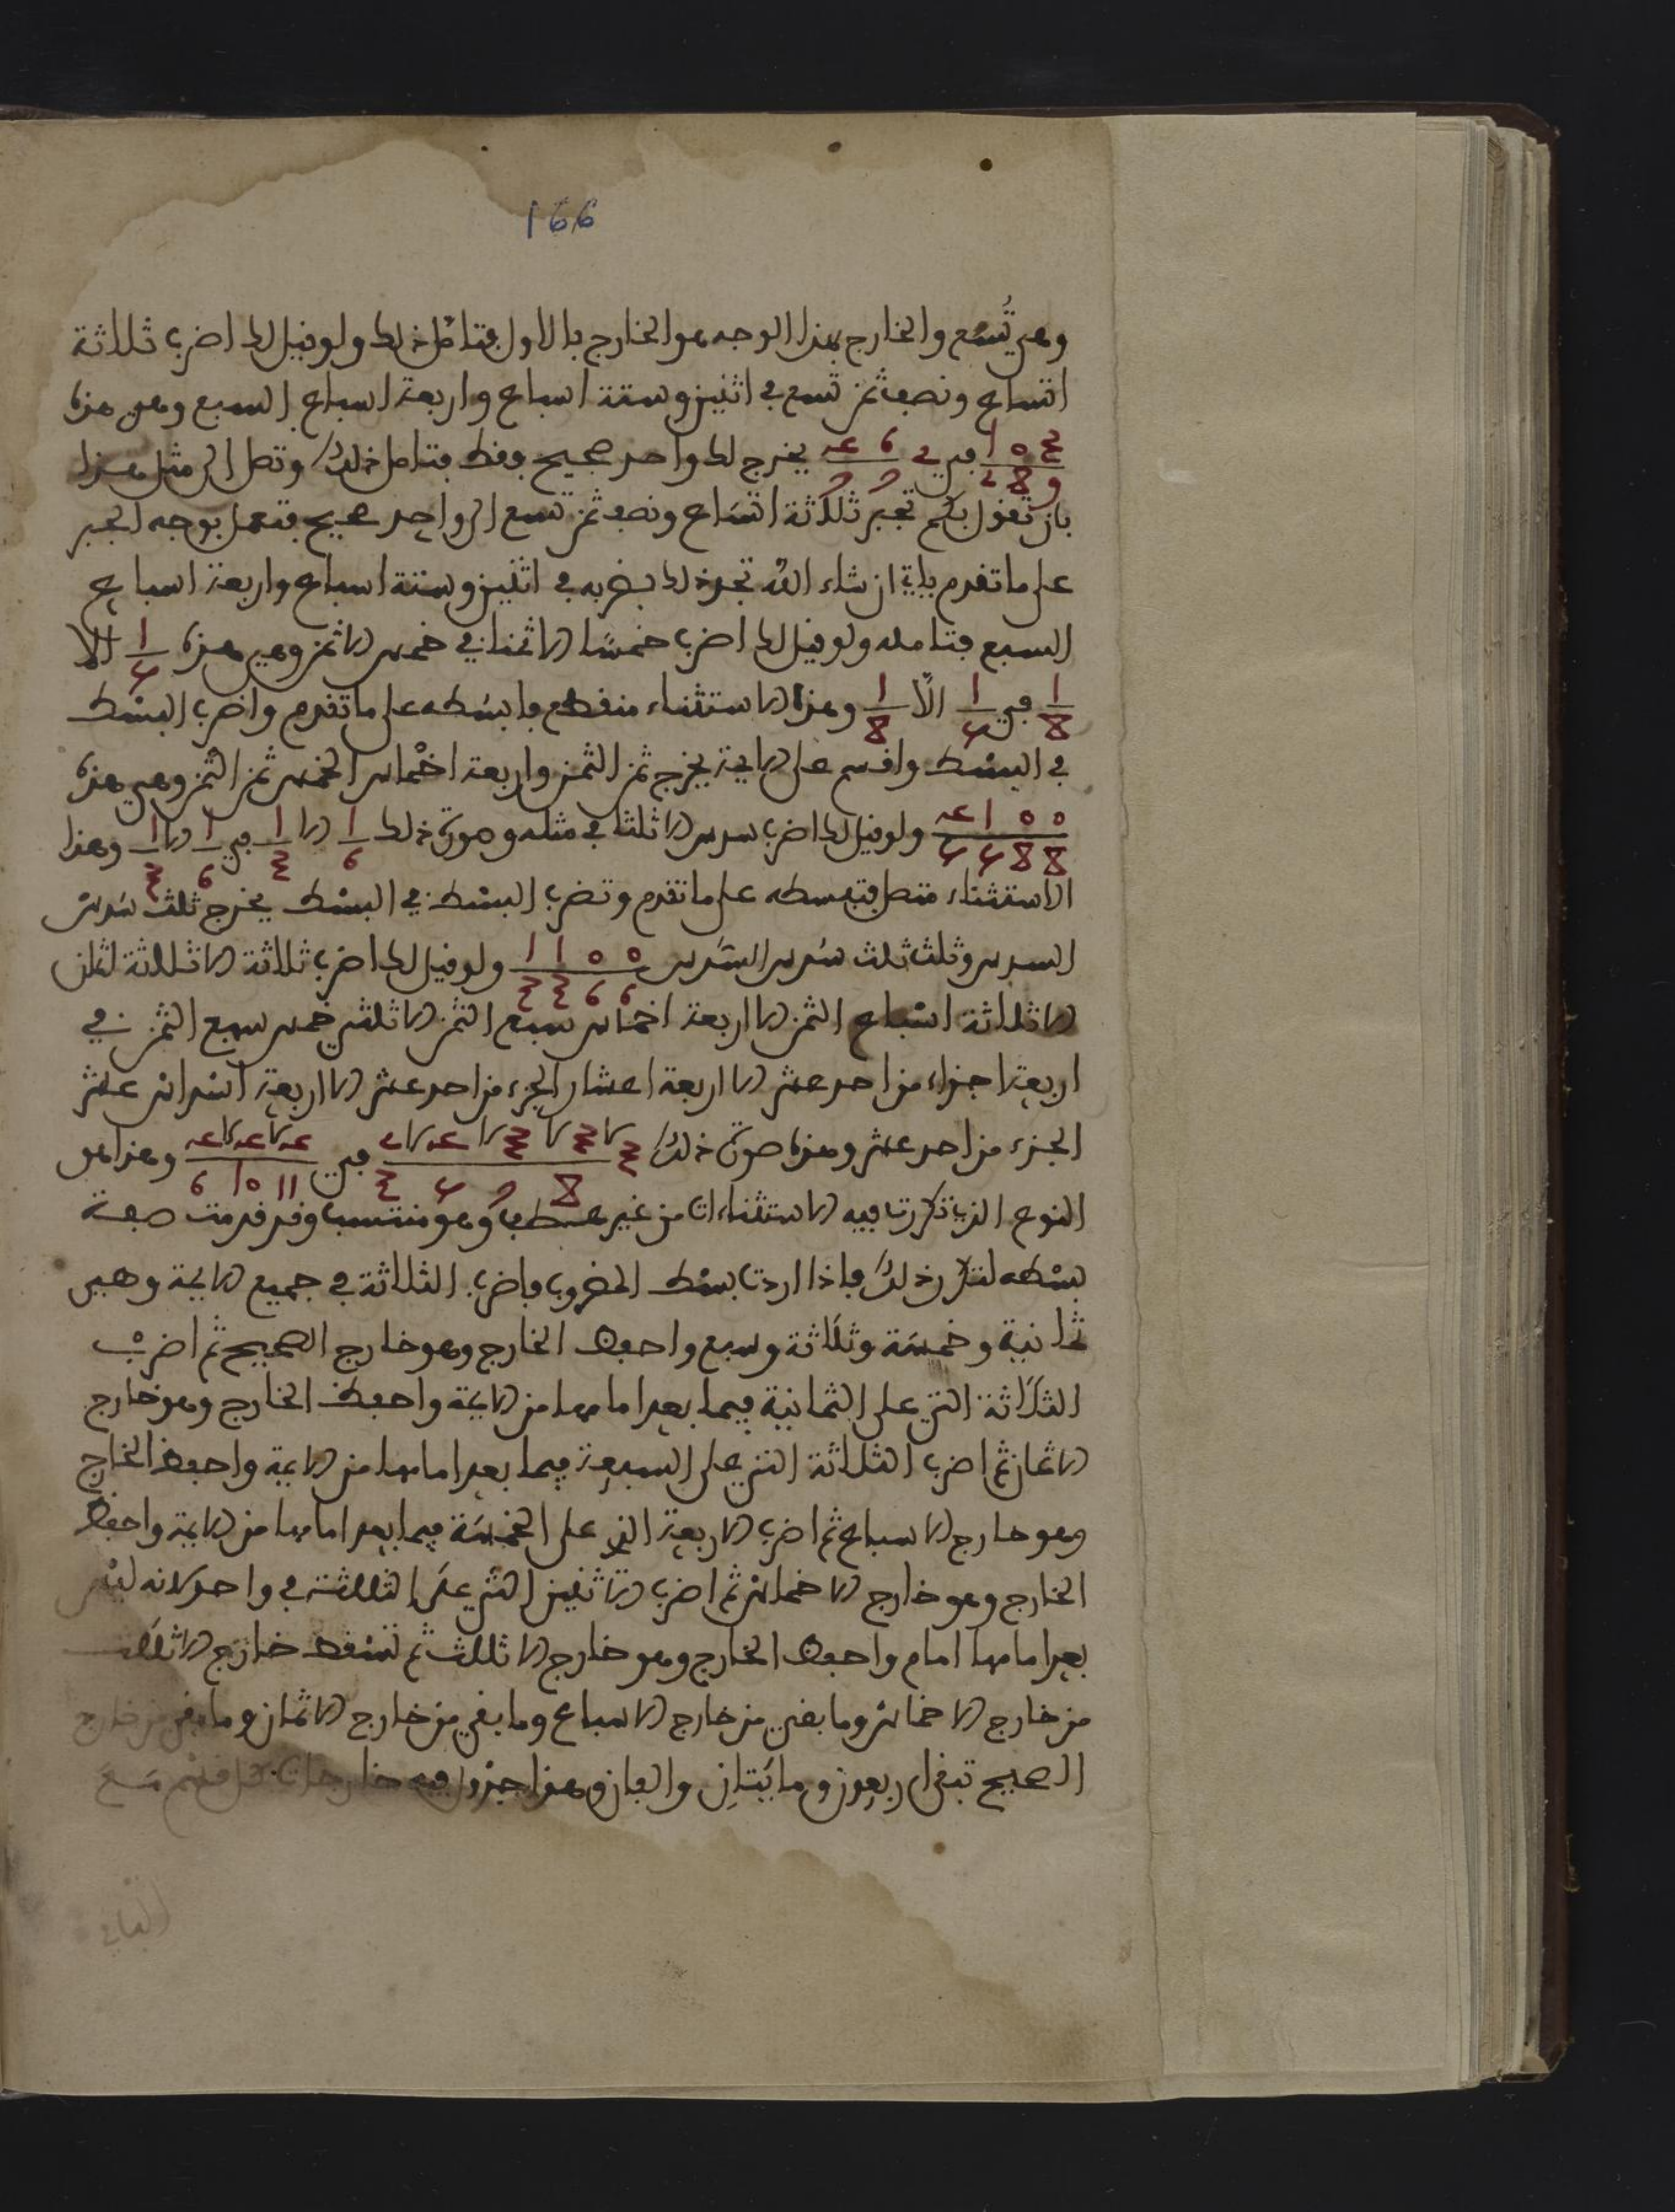 166
وهي تُسع والخارج بهذا الوجه هو الخارج بالاول فتامل ذلك ولو قيل لك اضرب ثلاثة
اتساع ونصف ثمن تسع في اثنين وستة اسباع واربعة اسباع السبع وهي هذه
في يخرج لك واحد صحيح فقط فتامل ذلك وتصل الى مثل هذا
بان تقول بكم تجبر ثلاثة اتساع ونصف ثمن تسع الى واحد صحيح فتعمل بوجه الجبر
على ما تقدم ياتي ان شاء الله تجد ذلك بضربه في اثنين وستة اسباع واربعة اسباع
السبع فتامله ولو قيل لك اضرب خمسًا الا ثمنا في خمس الا ثمن وهي هذه 1/5 الا
1/8 في 1/5 الّا 1/8 وهذا الاستثناء منقطع فابسطه على ما تقدم واضرب البسط
في البسط واقسم على الايمة يخرج ثمن الثمن واربعة اخماس الخمس ثمن الثمن وهي هذه
ولو قيل لك اضرب سدس الا ثلثا في مثله وصورة ذلك 1/6 الا 1/3 في 1/6 الا 1/3 وهذا
الاستثناء متصل فتبسطه على ما تقدم وتضرب البسط في البسط يخرج ثلث سدس
السدس وثلث ثلث سدس السدس 0 0 1 1 / 6 6 3 3 ولو قيل لك اضرب ثلاثة الا ثلاثة اثمان
الا ثلاثة اسباع الثمن الا اربعة اخماس سبع الثمن الا ثلثي خمس سبع الثمن في
اربعة اجزاء من احد عشر الا اربعة اعشار الجزء من احد عشر الا اربعة اسداس عشر
الجزء من احد عشر وهذه صورة ذلك في وهذا هو
النوع الذي تكررت فيه الاستثناءات من غير عطف وهو منتسب وقد قدمت صفة
بسطه لتكرر ذلك فاذا اردت بسط المضروب فاضرب الثلاثة في جميع الايمة وهي
ثمانية وخمسة وثلاثة وسبع واحفظ الخارج وهو خارج الصحيح ثم اضرب
الثلاثة التي على الثمانية فيما بعد امامها من الايمة واحفظ الخارج وهو خارج
الاثمان ثم اضرب الثلاثة التي على السبعة فيما بعد امامها من الايمة واحفظ الخارج
وهو خارج الاسباع ثم اضرب الاربعة التي على الخمسة فيما بعد امامها من الايمة واحفظ
الخارج وهو خارج الاخماس ثم اضرب الاثنين التي على الثلاثة في واحد لانه ليس
بعد امامها امام واحفظ الخارج وهو خارج الاثلاث ثم تسقط خارج الاثلاث
من خارج الاخماس وما بقي من خارج الاسباع وما بقي من خارج الاثمان وما بقي من خارج
الصحيح تبقى اربعون ومايتان والفان وهذا جدول فيه خارجات